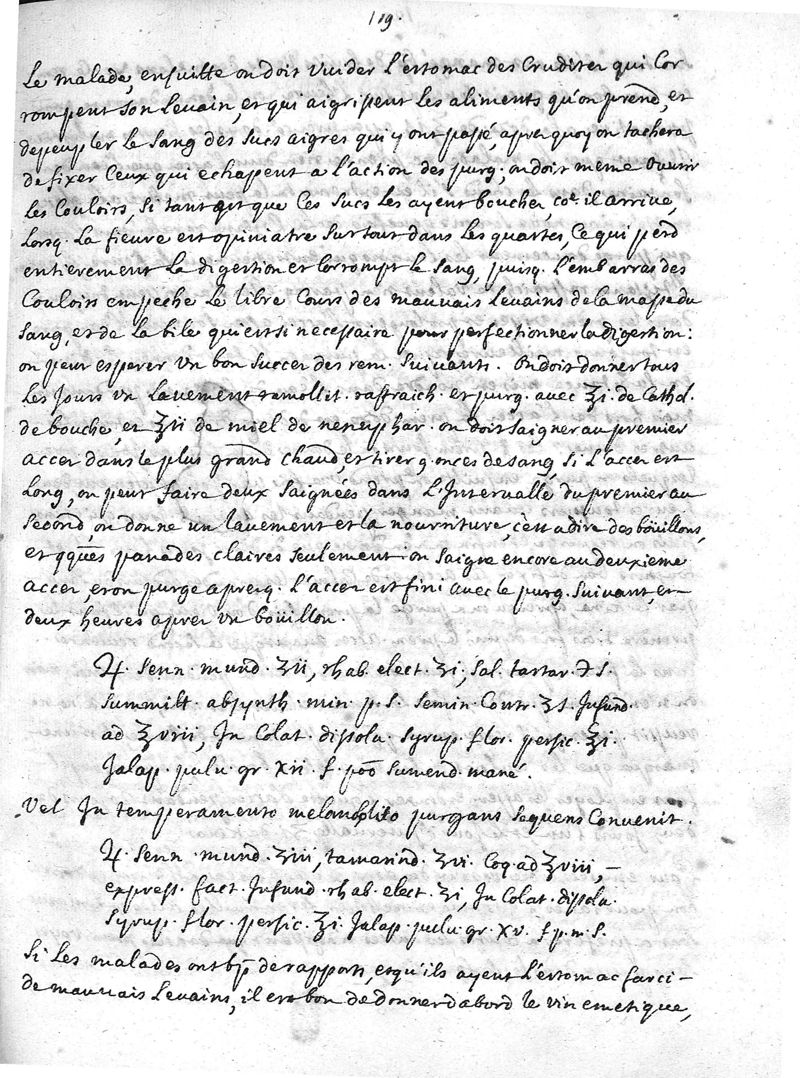 119.
Le malade, ensuitte on doit vuider l'estomac des crudites qui cor
rompent son levain, et qui aigrissent les aliments qu'on prend, et
depeupler le sang des sucs aigres qui y ont passé, apres quoy on tachera
de fixer ceux qui echapent a l'action des purg. on doit meme ouvrir
les couloirs, si tant est que ces sucs les ayent bouchez, coe. il arrive,
lorsq. la fievre est opiniatre sur tout dans les quartes, ce qui perd
entierement la digestion et corrompt le sang, puisq. l'embarras des
couloirs empeche le libre cours des mauvais levains de la masse du
sang, et de la bile qui est si necessaire pour perfectionner la digestion:
on peut esperer un bon succez des rem. suivants. On doit donner tous
les jours un lavement ramollit. raffraich. et purg. avec ℥i. de cathol.
de bouche, et ℥ii de miel de nenuphar. on doit saigner au premier
accez dans le plus grand chaud, et tirer 9. onces de sang, si l'accez est
long, on peut faire deux saignées dans l'Intervalle du premier au
second, on donne un lavement et la nourriture, c'est a dire des boüillons,
et qques panades claires seulement on saigne encore au deuxieme
accez, et on purge apresq. l'accez est fini avec le purg. suivant, en
deux heures aprez un boüillon.
♃. Senn. mund. ʒii, rhab. elect. ʒi, sal. tartar. ℈ s.
summit. absynth. min. p. s. semin. contr. ʒs. Infund.
ad ℥viii, In colat. dissolu. syrup. flor. persic. ℥i
Jalap. pulv. gr. xii f. poo sumend. mané.
Vel In temperamento melancholico purgans sequens convenit.
♃. Senn. mund. ʒiii, tamarind. ʒvi. coq. ad ℥viii,
express. fact. Infund. rhab. elect. ʒi, In colat. dissolu.
syrup. flor. persic. ℥i. Jalap. pulv. gr. xv. f p. m. s.
Si les malades ont bp de rapports, et qu'ils ayent l'estomac farci
de mauvais levains, il est bon de donner d'abord le vin emetique,